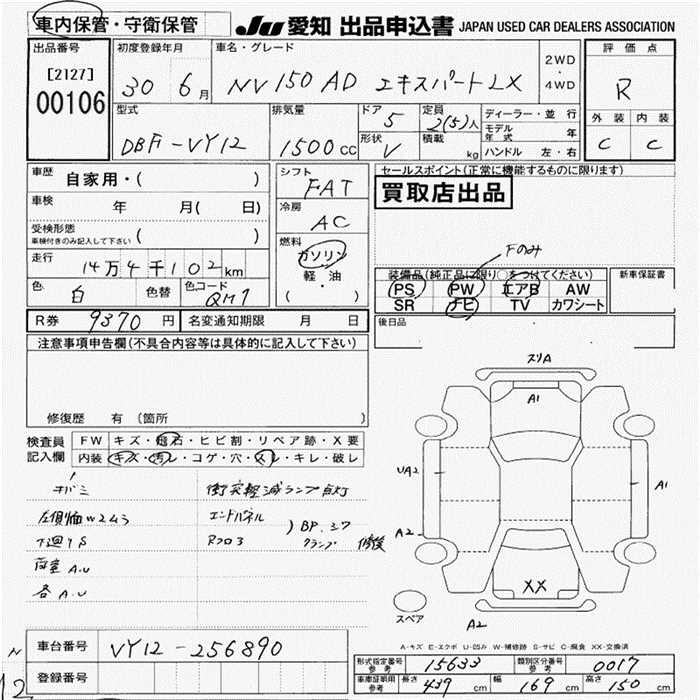 車内保管・守衛保管
JU 愛知 出品申込書 JAPAN USED CAR DEALERS ASSOCIATION
出品番号
[2127]
00106
初度登録年月
30 6月
車名・グレード
NV150 AD エキスパートLX
2WD
・
4WD
評価点
R
外装 内装
C C
型式
DBF-VY12
排気量
1500cc
ドア 5
形状 V
定員 2(5)人
積載 kg
ディーラー・並行
モデル年式 年
ハンドル 左・右
車歴 自家用・( )
車検 年 月( 日)
受検形態
車検付きのみ記入して下さい ( )
走行 14万4千102km
色 白 色替 色コード QM1
シフト
FAT
冷房
AC
燃料
ガソリン
軽・油
( ・ )
セールスポイント(正常に機能するものに限ります)
買取店出品
Fのみ
装備品(純正品に限り○をつけてください)
PS PW エアB AW
SR ナビ TV カワシート
新車保証書
後日品
R券 9370円 名変通知期限 月 日
注意事項申告欄(不具合内容等は具体的に記入して下さい)
修復歴 有(箇所 )
検査員
記入欄
FW キズ・飛石・ヒビ割・リペア跡・X要
内装 キズ・汚レ・コゲ・穴・スレ・キレ・破レ
衝突軽減ランプ点灯
エンドパネル
Rフロ3
) BP.シワ
クランプ 修復
左側面W2 43
下廻りS
荷室A.U
各A.U
スリA
A1
UA2
A1
A2
XX
A2
スペア
A-キズ E-エクボ U-凹み W-補修跡 S-サビ C-腐食 XX-交換済
車台番号 VY12-256890
登録番号
N
12
形式指定番号 参考 15633 類別区分番号 参考 0017
車庫証明用 参考 長さ 439cm 幅 169cm 高さ 150cm